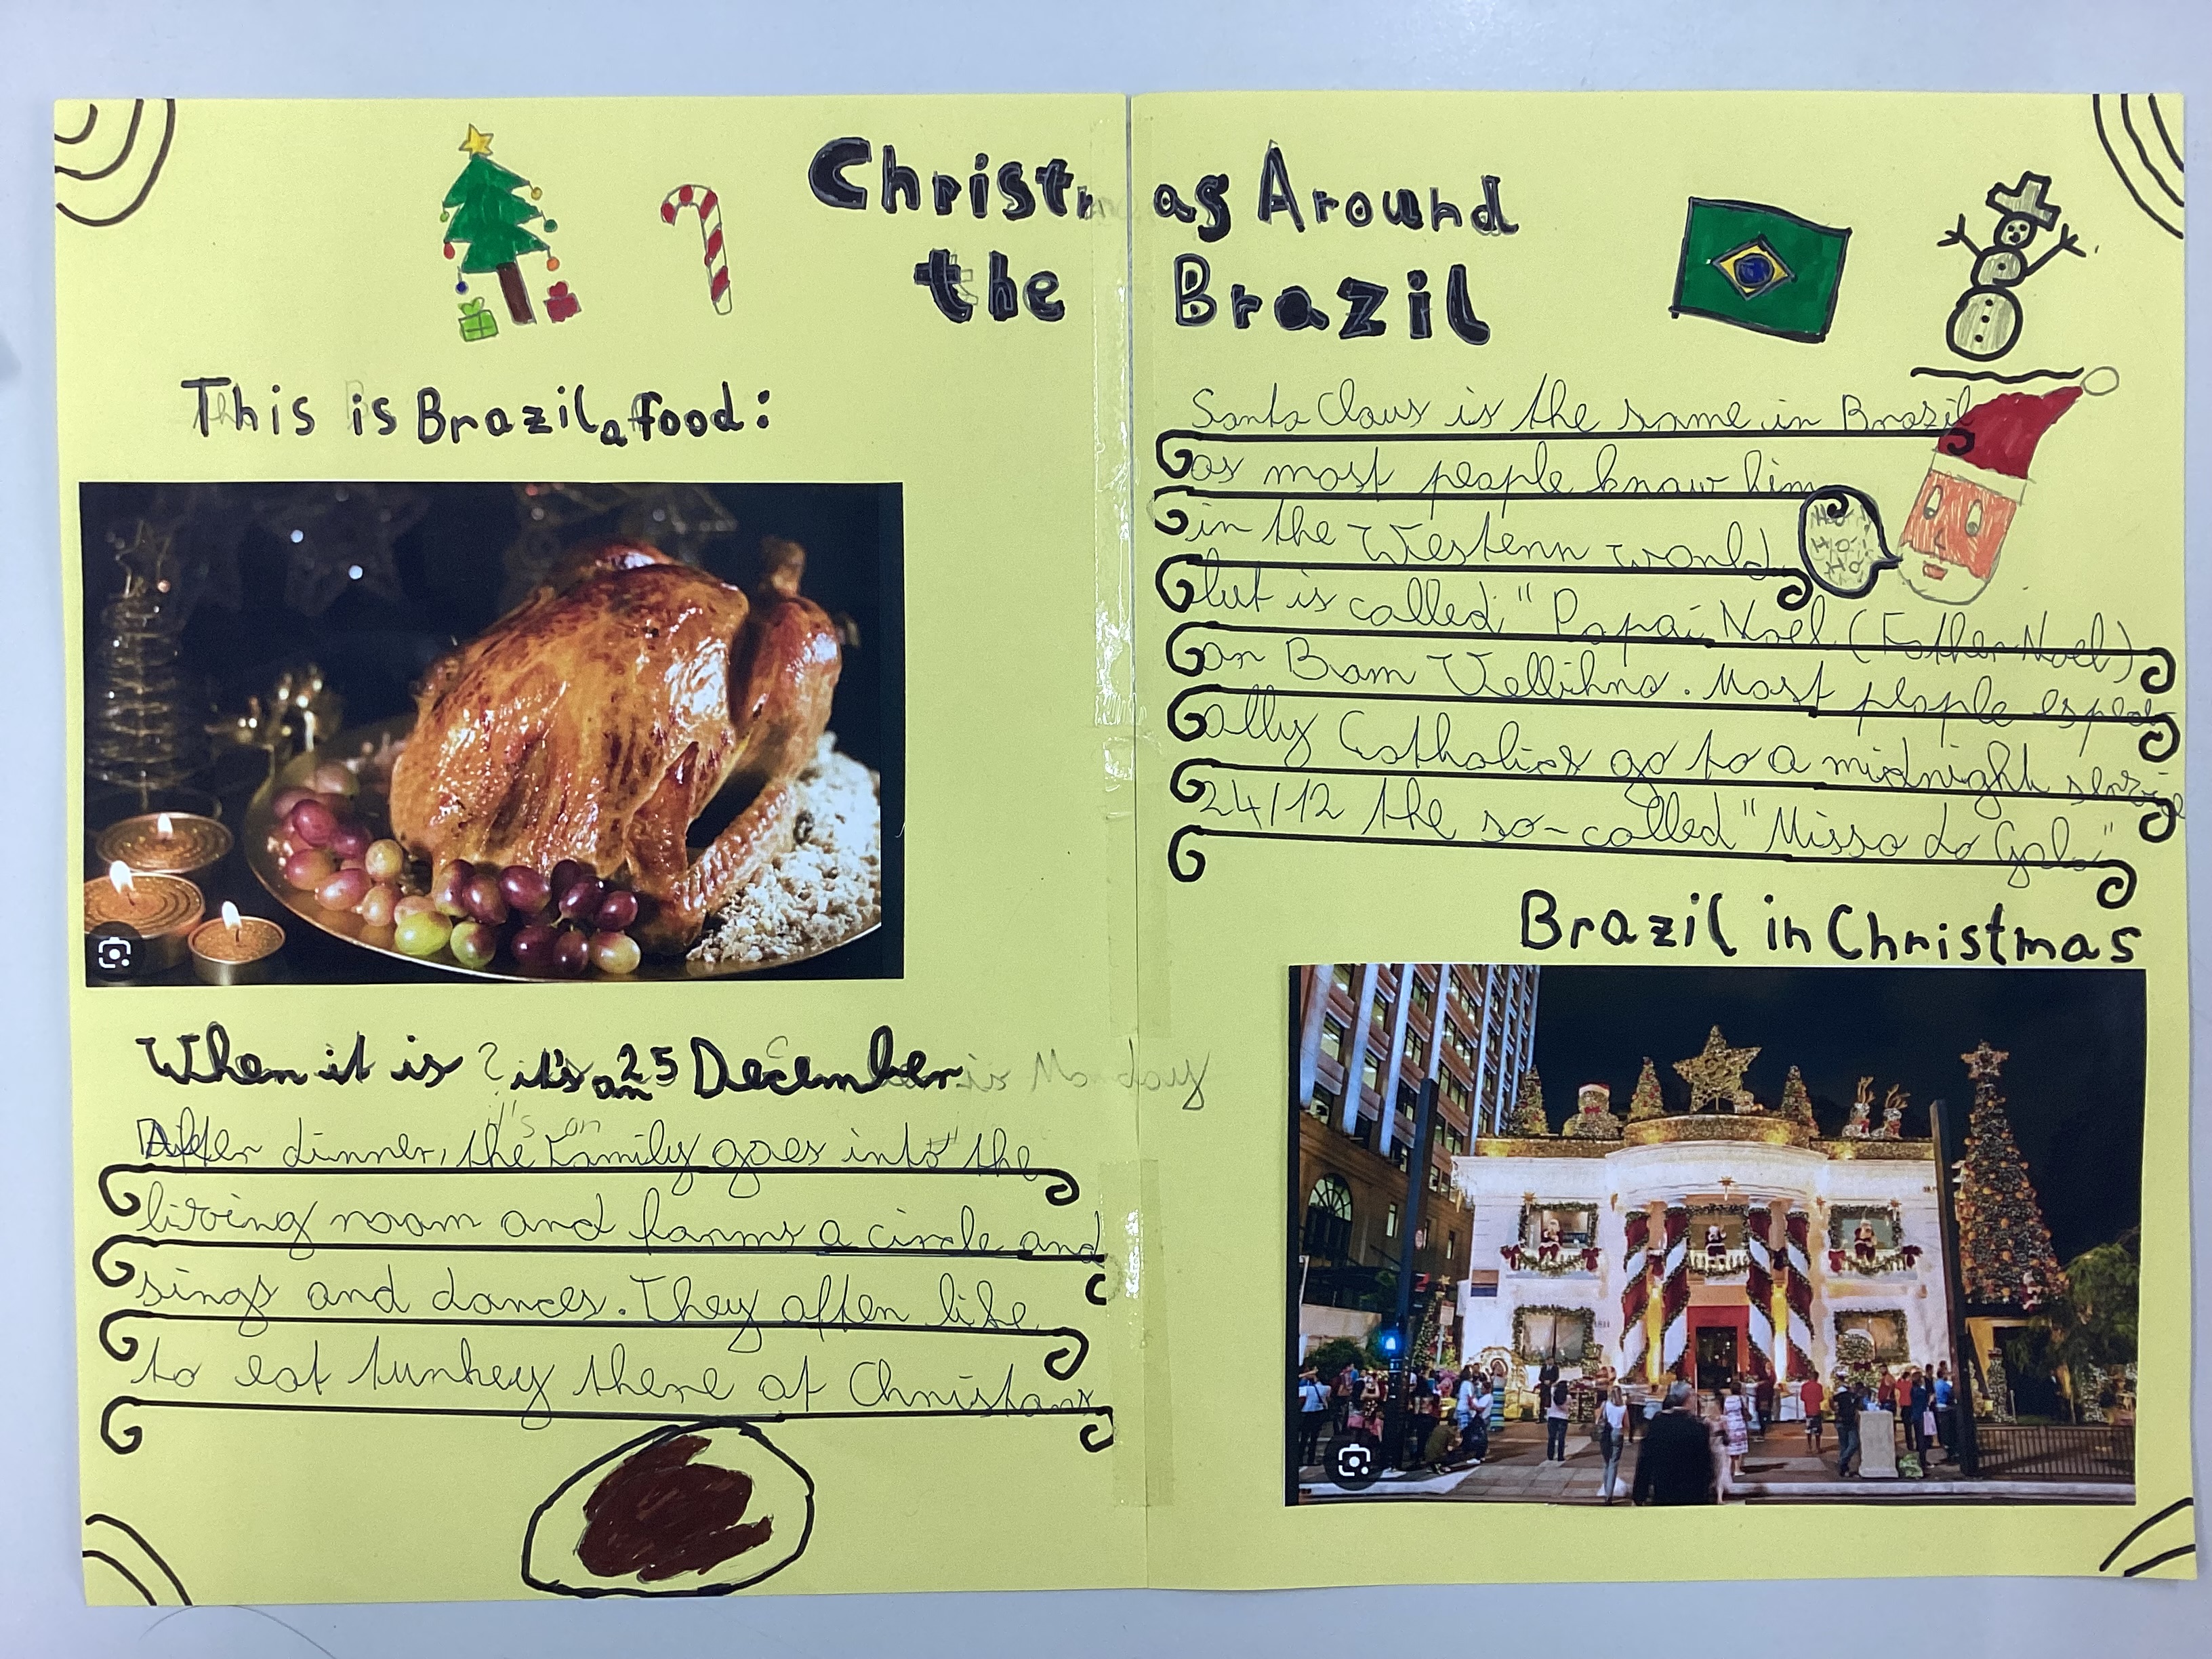 Christmas Around
the Brazil
This is Brazil a food:
When it is ? it's on 25 December is Monday
it's on
After dinner, the family goes into the
living room and forms a circle and
sings and dances. They often like
to eat turkey there at Christams
Santa Claus is the same in Brazil
as most people know him
in the Western world
but is called "Papai Noel (Father Noel)
or Bom Vellihno. Most people espec
ally Catholics go to a midnight service
24/12 the so-called "Missa do Galo"
Ho
Ho
Ho
Brazil in Christmas